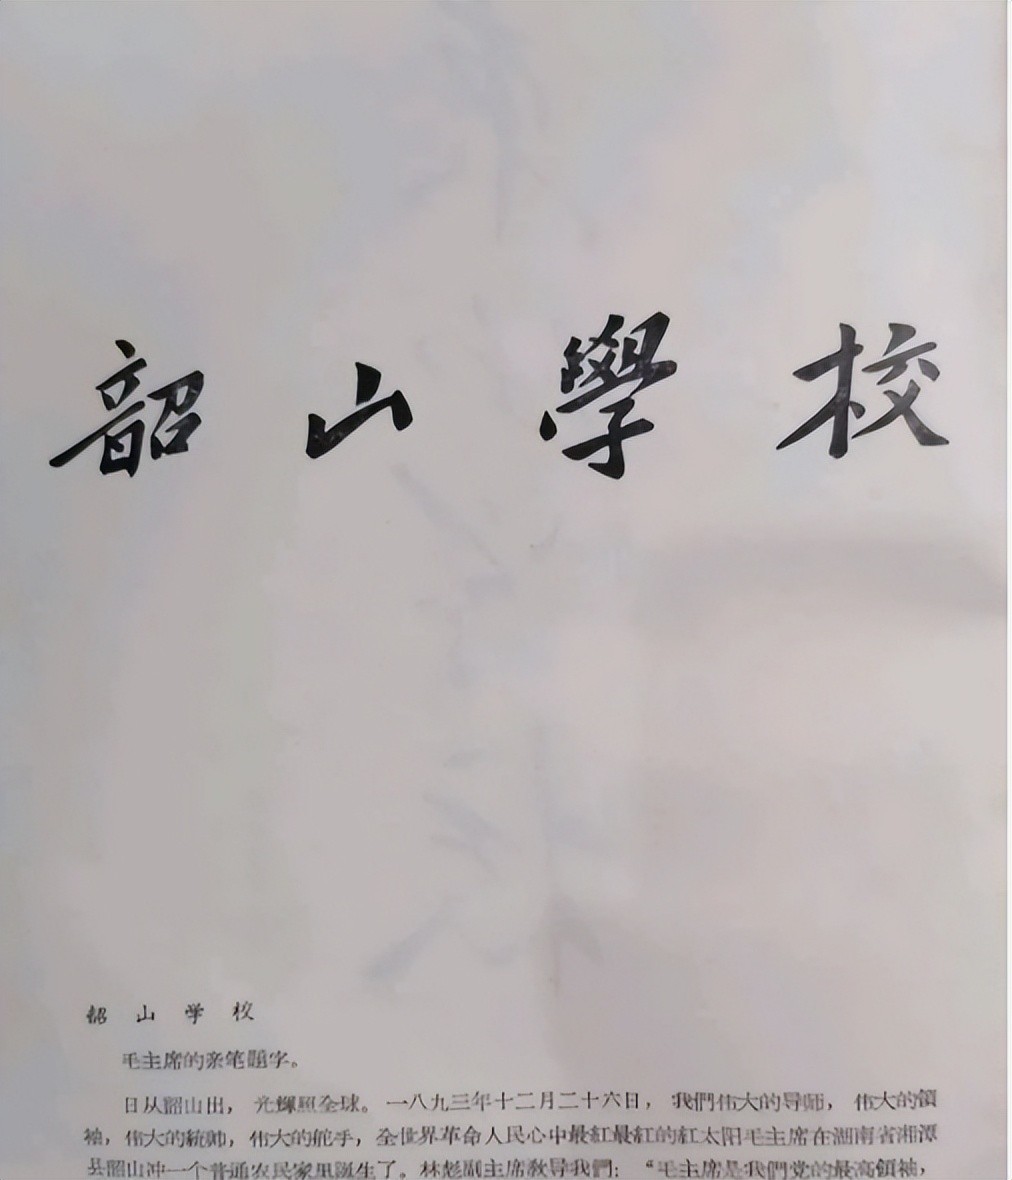 韶山學校
韶山学校
毛主席的亲笔題字。
日从韶山出，光輝照全球。一八九三年十二月二十六日，我們伟大的导师，伟大的領
袖，伟大的統帅，伟大的舵手，全世界革命人民心中最紅最紅的紅太阳毛主席在湖南省湘潭
县韶山冲一个普通农民家里誕生了。林彪副主席教导我們：“毛主席是我們党的最高領袖，